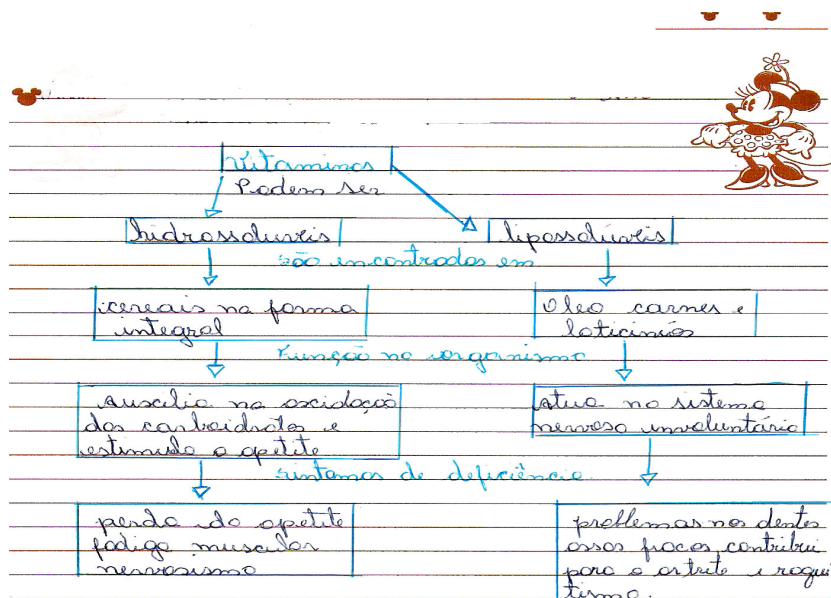 Vitaminas
Podem ser
hidrossoluveis
lipossolúveis
são encontrados em
cereais na forma
integral
Oleo carnes e
laticinios
Função no organismo
Auxilia na oxidação
dos carboidratos e
estimula o apetite
Atua no sistema
nervoso involuntário
sintomas de deficiência.
perda do apetite
fadiga muscular
nervosismo
problemas nos dentes
ossos fracos, contribui
para o artrite e raqui
tismo.